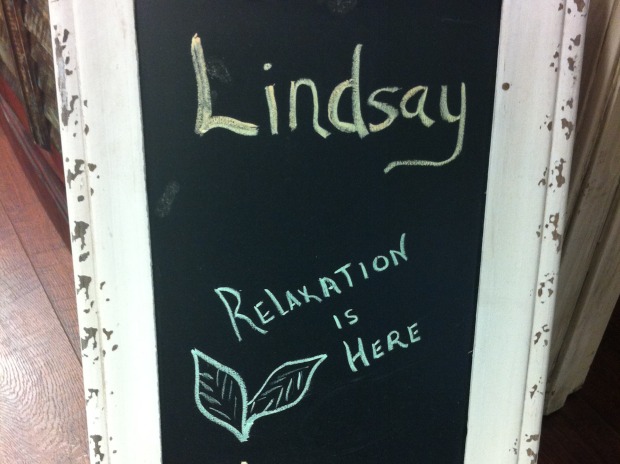 Lindsay
RELAXATION
IS
HERE